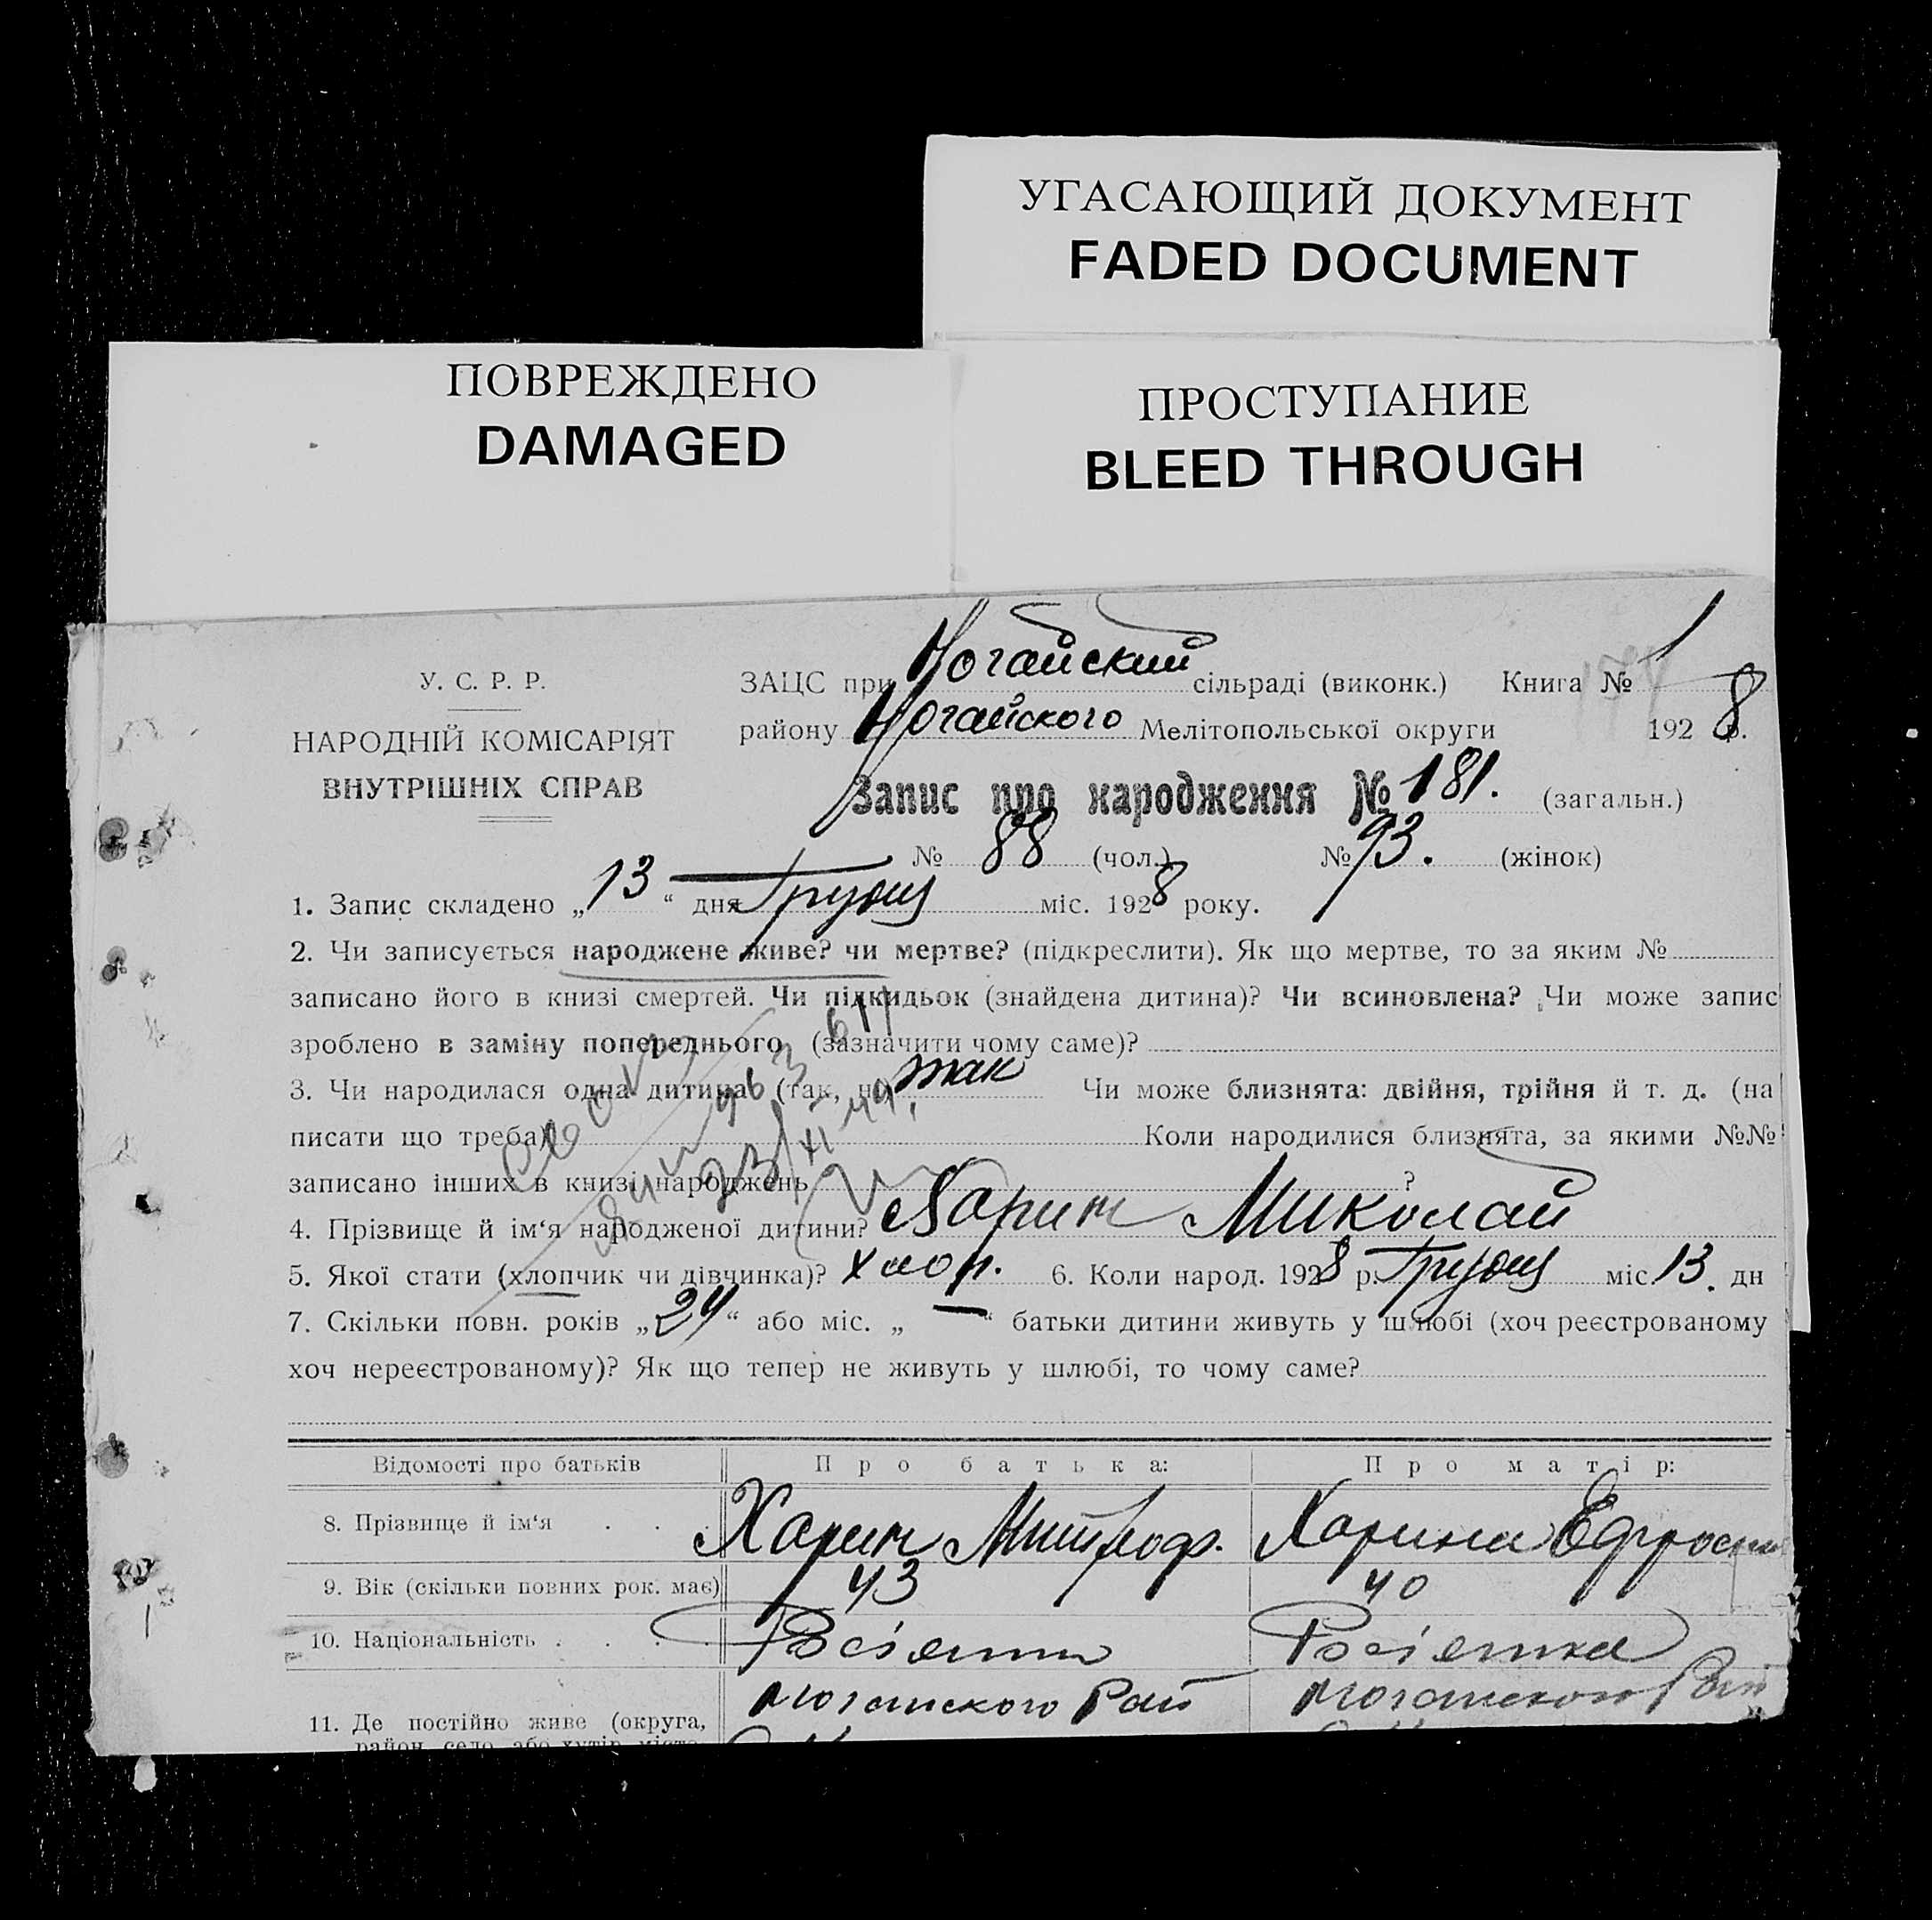 УГАСАЮЩИЙ ДОКУМЕНТ
FADED DOCUMENT
ПОВРЕЖДЕНО
DAMAGED
ПРОСТУПАНИЕ
BLEED THROUGH
У. С. Р. Р.
НАРОДНІЙ КОМІСАРІЯТ
ВНУТРІШНІХ СПРАВ
ЗАЦС при Ногайский сільраді (виконк.) Книга № 1
району Ногайского Мелітопольської округи 1928 р.
Запис про народження № 181. (загальн.)
№ 88 (чол.) № 93. (жінок)
1. Запис складено „13“ дня Грудня міс. 1928 року.
2. Чи записується народжене живе? чи мертве? (підкреслити). Як що мертве, то за яким №
записано його в книзі смертей. Чи підкидьок (знайдена дитина)? Чи всиновлена? Чи може запис
зроблено в заміну попереднього (зазначити чому саме)?
3. Чи народилася одна дитина (так, ні) так Чи може близнята: двійня, трійня й т. д. (на
писати що треба) Коли народилися близнята, за якими №№
записано інших в книзі народжень ?
4. Прізвище й ім‘я народженої дитини? Харин Миколай
5. Якої стати (хлопчик чи дівчинка)? хлоп. 6. Коли народ. 1928 р. Грудня міс 13. дн
7. Скільки повн. років „24“ або міс. „—“ батьки дитини живуть у шлюбі (хоч реєстрованому
хоч нереєстрованому)? Як що тепер не живуть у шлюбі, то чому саме?
Відомості про батьків Про батька: Про матір:
8. Прізвище й ім‘я . . . Харин Митроф. Харина Ефросин
9. Вік (скільки повних рок. має) 43 40
10. Національність . . . . Росіянин Росіянка
11. Де постійно живе (округа, Ногайского Рай Ногайского Рай
район, село або хутір, місто